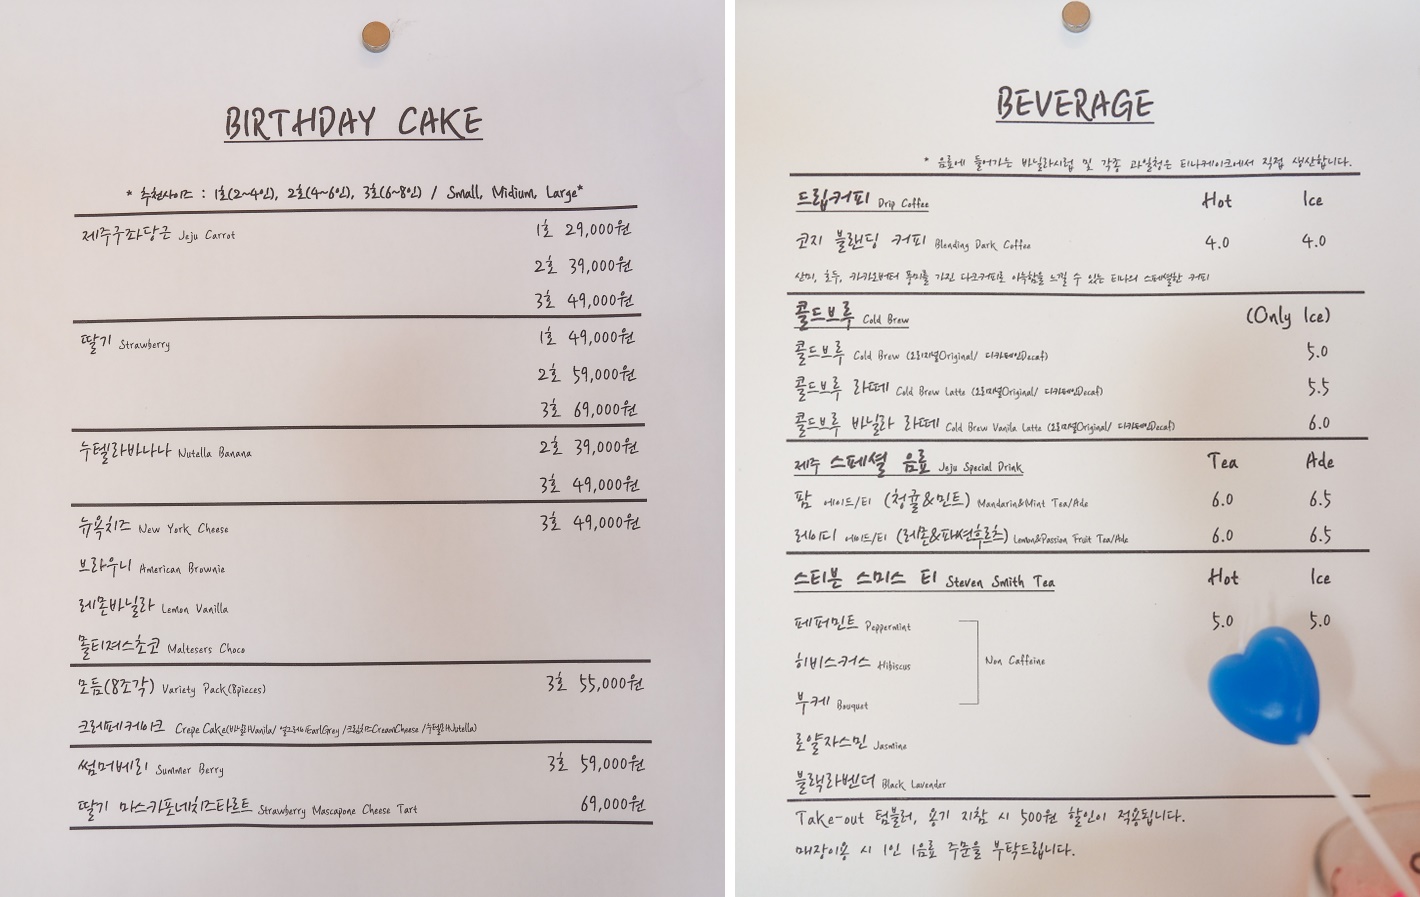 BIRTHDAY CAKE
* 추천사이즈 : 1호(2~4인), 2호(4~6인), 3호(6~8인) / Small, Midium, Large*
제주구좌당근 Jeju Carrot 1호 29,000원
2호 39,000원
3호 49,000원
딸기 Strawberry 1호 49,000원
2호 59,000원
3호 69,000원
누텔라바나나 Nutella Banana 2호 39,000원
3호 49,000원
뉴욕치즈 New York Cheese 3호 49,000원
브라우니 American Brownie
레몬바닐라 Lemon Vanilla
몰티져스초코 Maltesers Choco
모듬(8조각) Variety Pack(8pieces) 3호 55,000원
크레페케이크 Crepe Cake(바닐라Vanila/ 얼그레이EarlGrey /크림치즈CreamCheese /누텔라Nutella)
썸머베리 Summer Berry 3호 59,000원
딸기 마스카포네치즈타르트 Strawberry Mascapone Cheese Tart 69,000원
BEVERAGE
* 음료에 들어가는 바닐라시럽 및 각종 과일청은 티나케이크에서 직접 생산합니다.
드립커피 Drip Coffee Hot Ice
코지 블랜딩 커피 Blending Dark Coffee 4.0 4.0
산미, 호두, 카카오버터 풍미를 가진 다크커피로 아늑함을 느낄 수 있는 티나의 스페셜한 커피
콜드브루 Cold Brew (Only Ice)
콜드브루 Cold Brew (오리지널Original/ 디카페인Decaf) 5.0
콜드브루 라떼 Cold Brew Latte (오리지널Original/ 디카페인Decaf) 5.5
콜드브루 바닐라 라떼 Cold Brew Vanila Latte (오리지널Original/ 디카페인Decaf) 6.0
제주 스페셜 음료 Jeju Special Drink Tea Ade
팜 에이드/티 (청귤&민트) Mandarin&Mint Tea/Ade 6.0 6.5
레이디 에이드/티 (레몬&파션후르츠) Lemon&Passion Fruit Tea/Ade 6.0 6.5
스티븐 스미스 티 Steven Smith Tea Hot Ice
페퍼민트 Peppermint 5.0 5.0
히비스커스 Hibiscus Non Caffeine
부케 Bouquet
로얄자스민 Jasmine
블랙라벤더 Black Lavender
Take-out 텀블러, 용기 지참 시 500원 할인이 적용됩니다.
매장이용 시 1인 1음료 주문을 부탁드립니다.